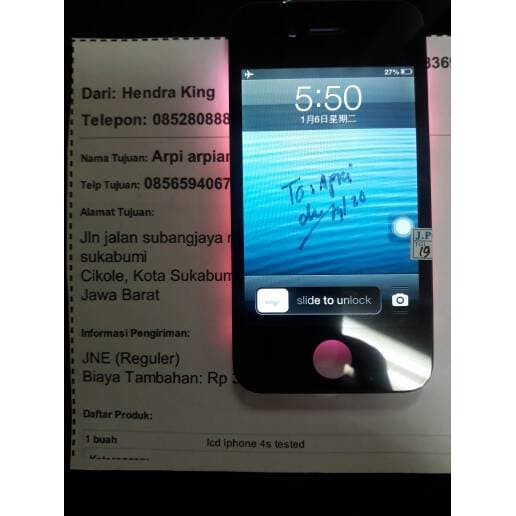 27%
5:50
1月6日星期二
To: Apri
J.P
19
slide to unlock
Dari: Hendra King
Telepon: 085280888
Nama Tujuan: Arpi arpian
Telp Tujuan: 0856594067
Alamat Tujuan:
Jln jalan subangjaya
sukabumi
Cikole, Kota Sukabum
Jawa Barat
Informasi Pengiriman:
JNE (Reguler)
Biaya Tambahan: Rp
Daftar Produk:
1 buah lcd iphone 4s tested